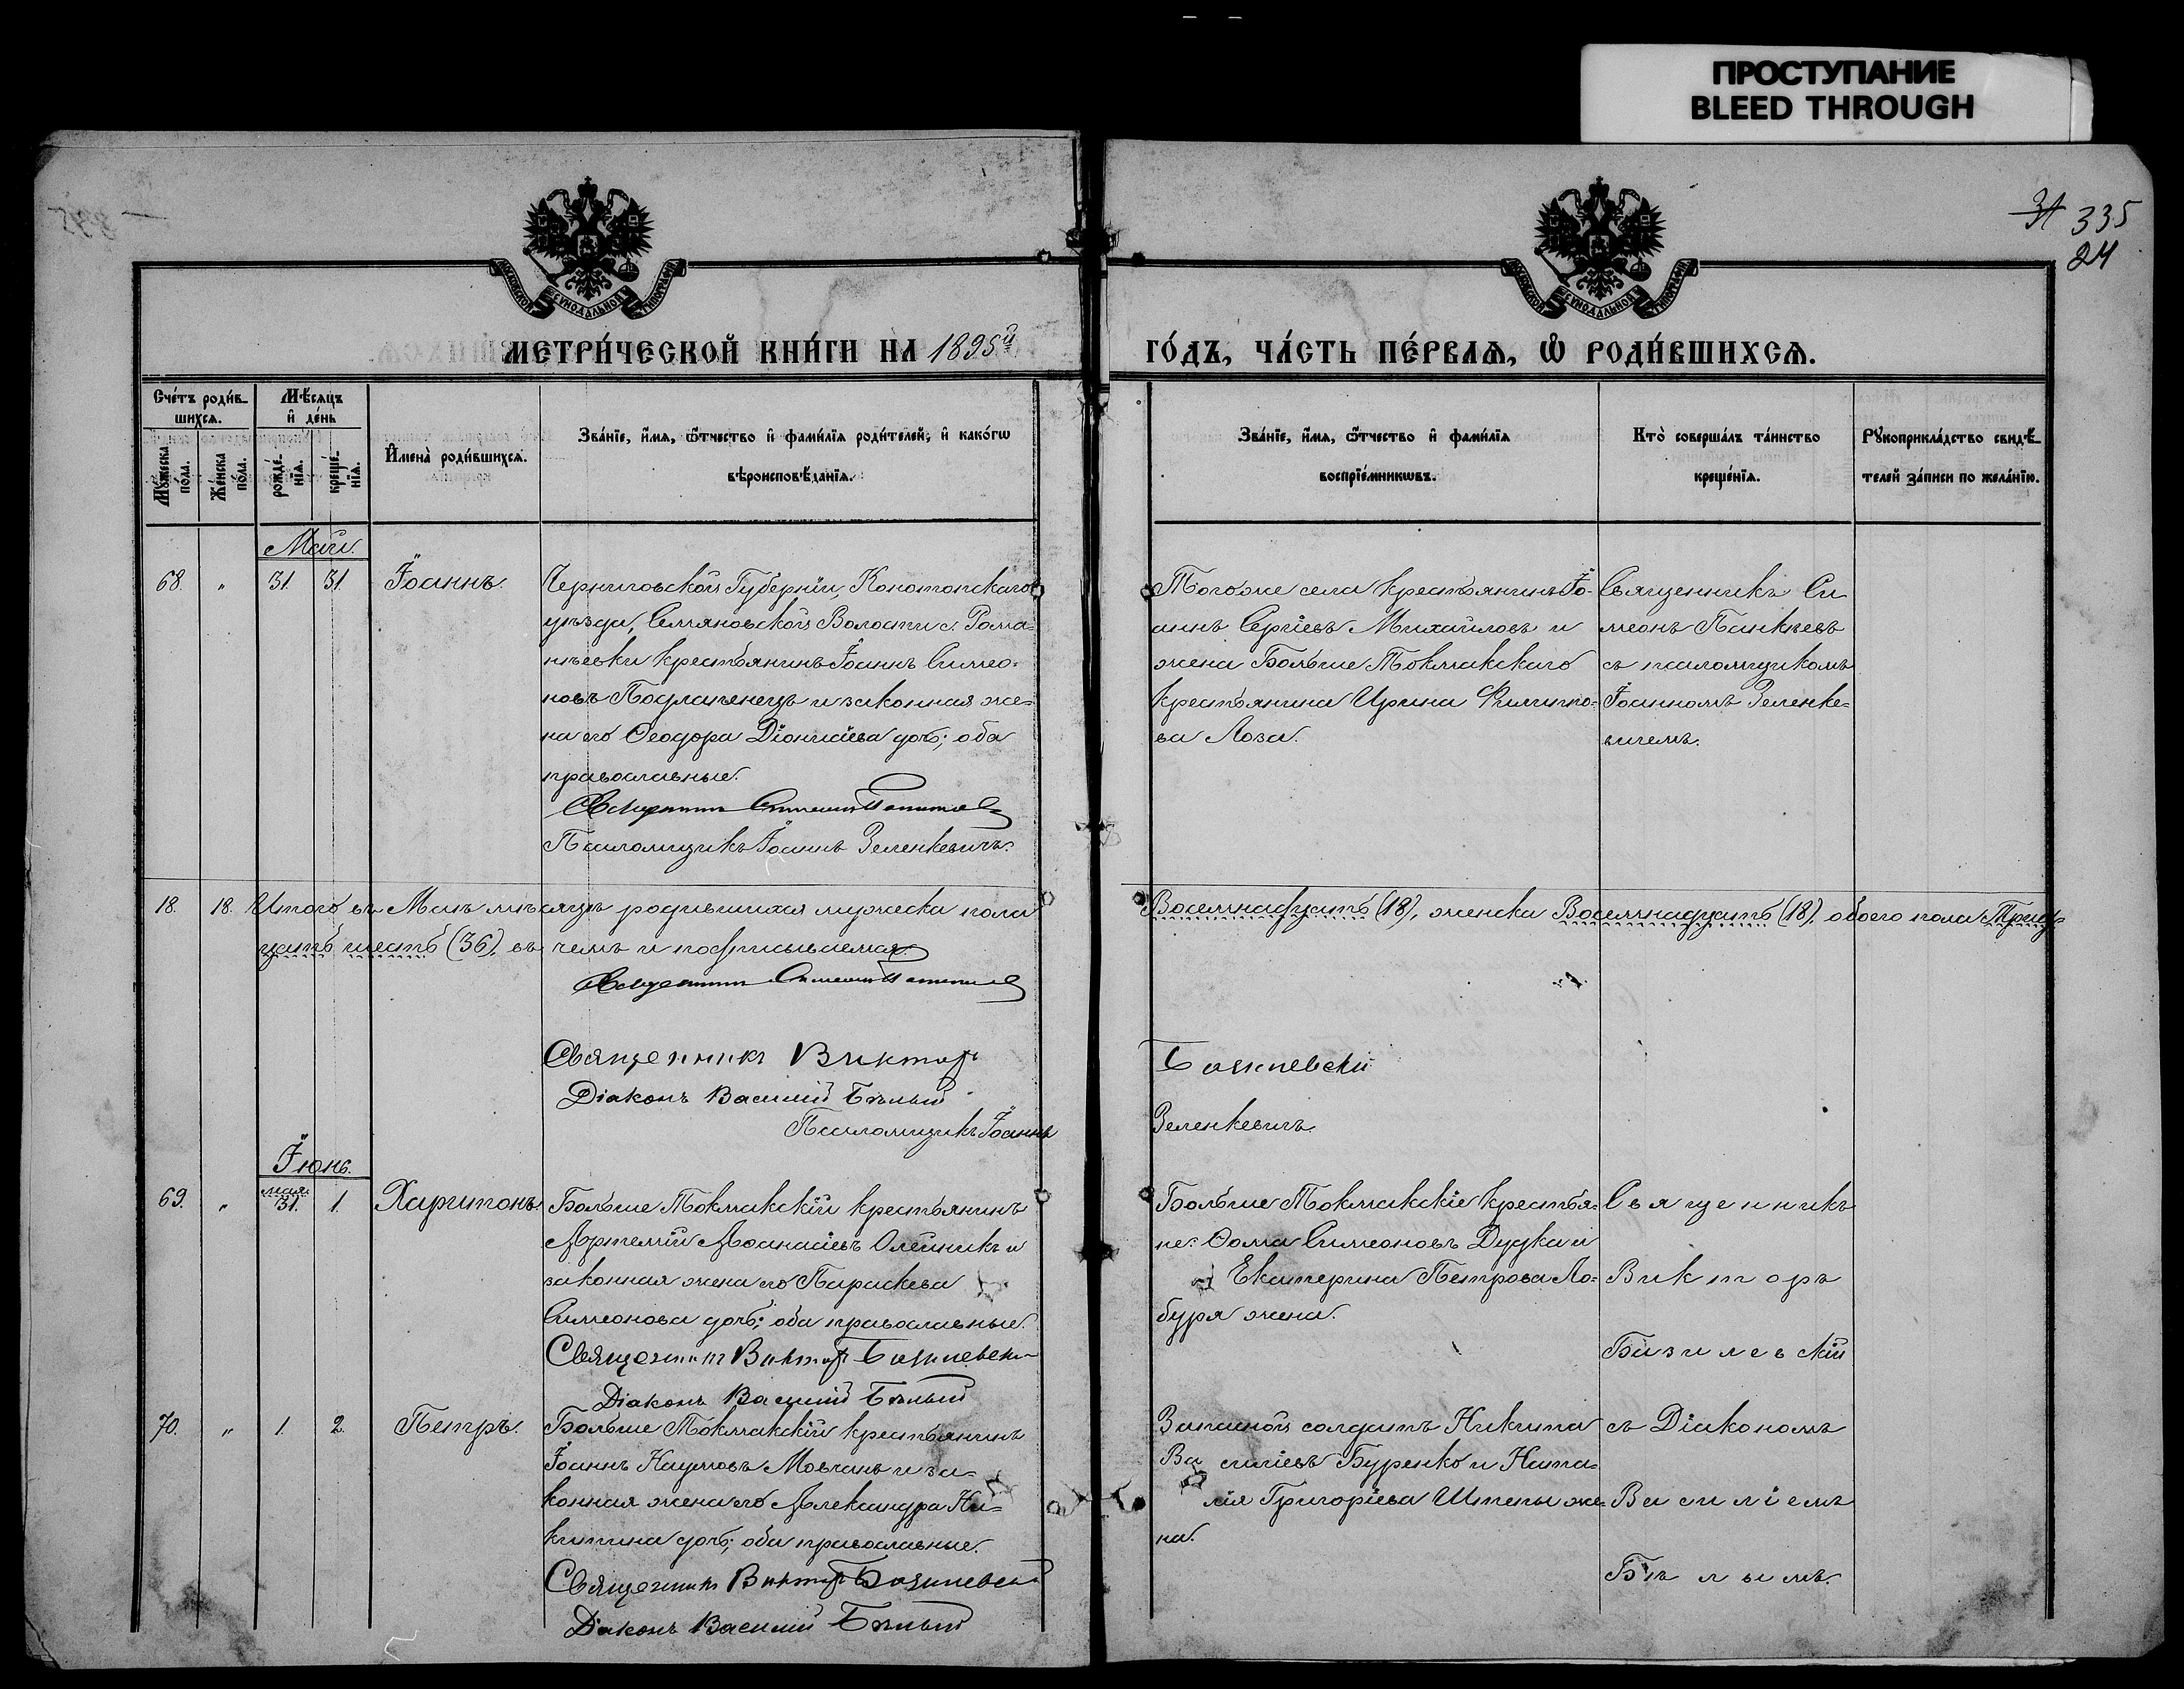 ПРОСТУПАНИЕ
BLEED THROUGH
335
24
МЕТРИ́ЧЕСКОЙ КНИ́ГИ НА 1895й
ГО́ДЪ, ЧА́СТЬ ПЕ́РВАѦ, Ѡ҆ РОДИ́ВШИХСѦ.
Сче́тъ роди́в-
шихсѧ.
Мѣ́сѧцъ
и҆ де́нь
Мꙋ́жеска по́ла.
Же́нска по́ла.
рожде́-нїѧ.
креще́-нїѧ.
И҆мена̀ роди́вшихсѧ.
Зва́нїе, и҆́мѧ, ѻ҆́тчество и҆ фами́лїѧ роди́телей, и҆ како́гѡ
вѣроисповѣ́данїѧ.
Зва́нїе, и҆́мѧ, ѻ҆́тчество и҆ фами́лїѧ
воспрїе́мникѡвъ.
Кто̀ соверша́лъ та́инство
креще́нїѧ.
Рꙋкоприкла́дство свидѣ́-
телей за́писи по жела́нїю.
Май.
68. " 31. 31. Іоаннъ.
Черниговской Губерніи, Конотопскаго
уѣзда, Семяновской Волости с. Рома-
нѣевки крестьянинъ Іоаннъ Симео-
новъ и законная же-
на его Ѳеодора Діонисіева дочь; оба
православные.
Псаломщикъ Іоаннъ Зеленкевичъ.
Тогоже села крестьянинъ Іо-
аннъ Сергіевъ Михайловъ и
жена Больше Токмакскаго
крестьянина Ирина Филиппо-
ва Лоза.
Священникъ Си
меонъ Панкѣевъ
съ псаломщикомъ
Іоанномъ Зеленке-
вичемъ.
18. 18. Итого въ Маѣ мѣсяцѣ родившихся мужеска пола Восемнадцать (18), женска Восемнадцать (18), обоего пола Трид-
цать шесть (36), въ чемъ и подписываемся.
Священникъ Викторъ Базилевскій
Діаконъ Василій Бѣлый
Псаломщикъ Іоаннъ Зеленкевичъ
Іюнь.
69. " мая 31. 1. Харитонъ.
Больше Токмакскій крестьянинъ
Артемій Аѳанасіевъ Олейникъ и
законная жена его Параскева
Симеонова дочь; оба православные.
Священникъ Викторъ Базилевскій
Діаконъ Василій Бѣлый
Больше Токмакскіе крестья-
не: Ѳома Симеоновъ Дудка и
Екатерина Петрова Ло-
буря жена.
Священникъ
Викторъ
Базилевскій
70. " 1. 2. Петръ.
Больше Токмакскій крестьянинъ
Іоаннъ Наумовъ Мовчанъ и за-
конная жена его Александра Ни-
китина дочь; оба православные.
Священникъ Викторъ Базилевскій
Діаконъ Василій Бѣлый
Запасной солдатъ Никита
Василіевъ Буренко и Ната-
лія Григоріева Штепы же-
на.
съ Діакономъ
Василіемъ
Бѣлымъ.